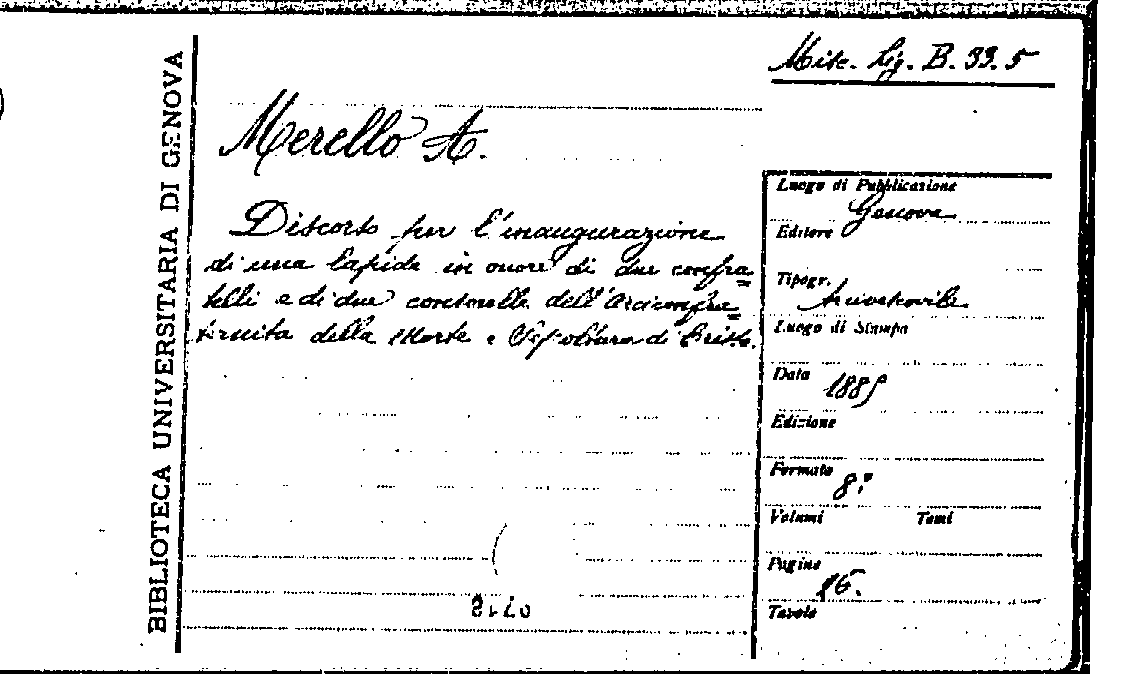 BIBLIOTECA UNIVERSITARIA DI GENOVA
Misc. Lig. B. 33. 5
Merello A.
Discorso per l'inaugurazione
di una lapide in onore di due confra=
telli e di due consorelle dell'Arciconfra=
ternita della Morte e Sepoltura di Cristo.
Luogo di Pubblicazione
Genova
Editore
Tipogr.
Arcivescovile
Luogo di Stampa
Data
1885
Edizione
Formato
8°
Volumi Tomi
Pagine
16.
Tavole